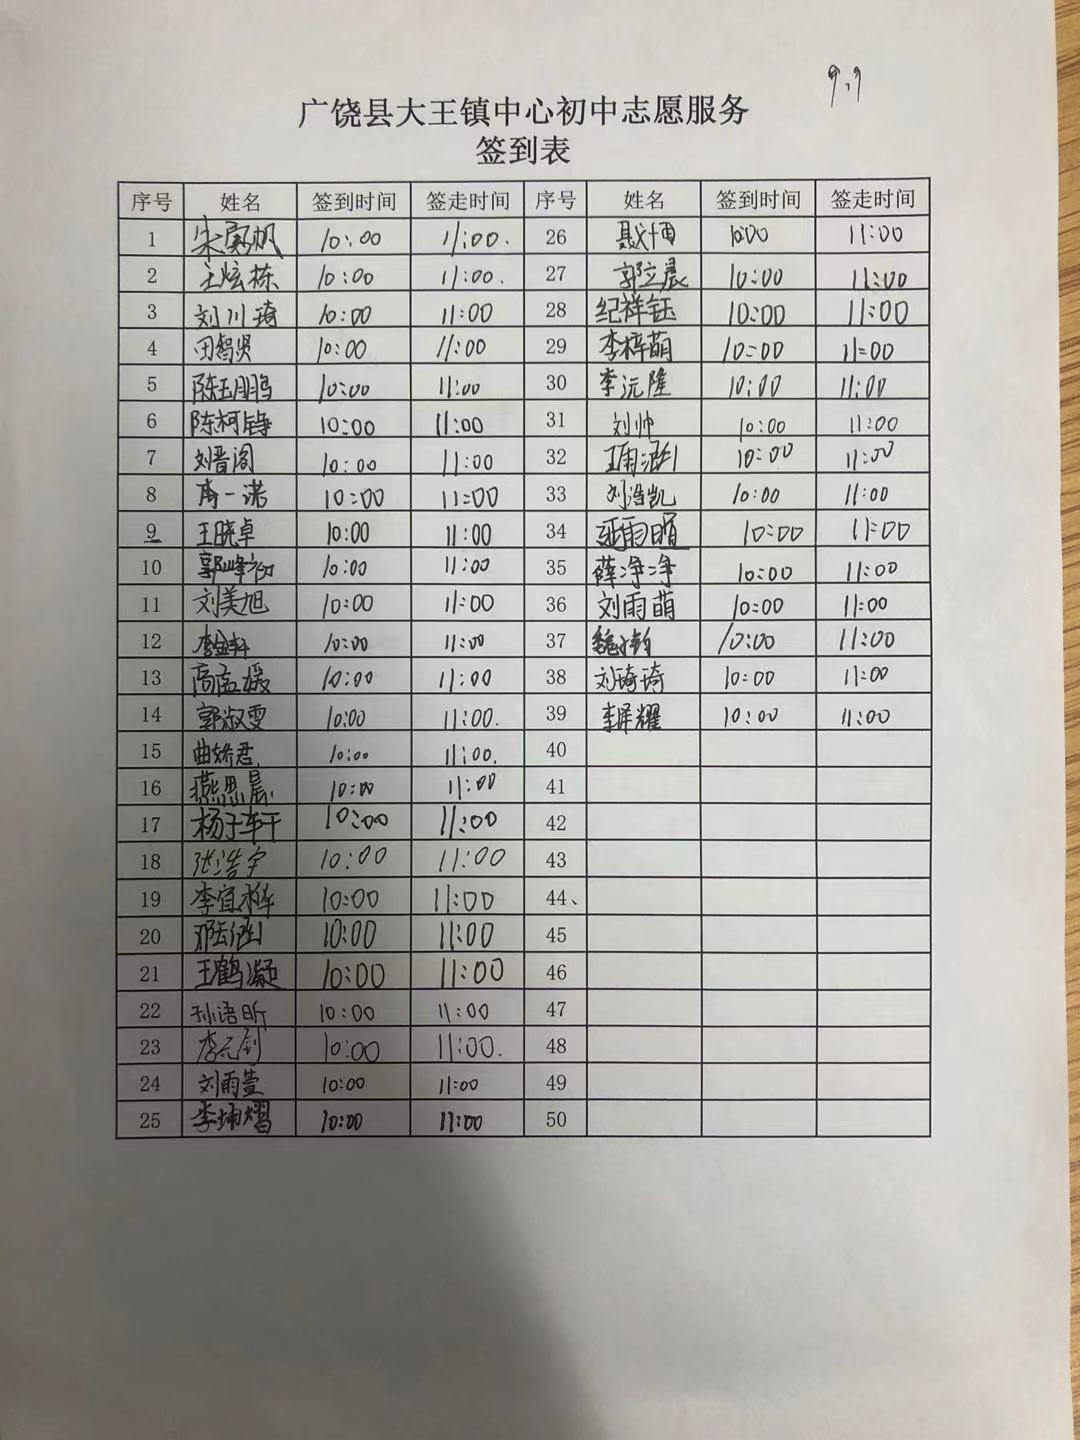 9.9
广饶县大王镇中心初中志愿服务
签到表
序号 姓名 签到时间 签走时间 序号 姓名 签到时间 签走时间
1 10:00 11:00. 26 10:00 11:00
2 王炫栋 10:00 11:00. 27 郭立晨 10:00 11:00
3 刘川琦 10:00 11:00 28 纪祥钰 10:00 11:00
4 田智贤 10:00 11:00 29 李梓萌 10:00 11:00
5 陈玉鹏 10:00 11:00 30 李沅隆 10:00 11:00
6 陈柯铮 10:00 11:00 31 刘帅 10:00 11:00
7 刘晋阁 10:00 11:00 32 王雨涵 10:00 11:00
8 一诺 10:00 11:00 33 刘浩凯 10:00 11:00
9 王晓卓 10:00 11:00 34 10:00 11:00
10 郭峰 10:00 11:00 35 薛净净 10:00 11:00
11 刘美旭 10:00 11:00 36 刘雨萌 10:00 11:00
12 10:00 11:00 37 魏 10:00 11:00
13 高孟媛 10:00 11:00 38 刘琦琦 10:00 11:00
14 郭淑雯 10:00 11:00. 39 李泽耀 10:00 11:00
15 曲娇君. 10:00 11:00. 40
16 燕思晨. 10:00 11:00 41
17 杨子轩 10:00 11:00 42
18 张浩宇 10:00 11:00 43
19 李宜桦 10:00 11:00 44、
20 邓云涵 10:00 11:00 45
21 王鹤凝 10:00 11:00 46
22 孙语昕 10:00 11:00 47
23 李元钊 10:00 11:00. 48
24 刘雨萱 10:00 11:00 49
25 李坤熠 10:00 11:00 50